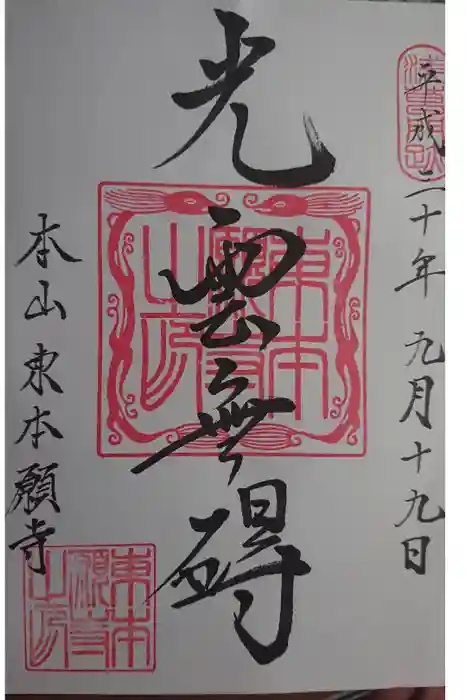 平成二十年九月十九日
光雲無碍
本山東本願寺
東本願寺
東本願寺